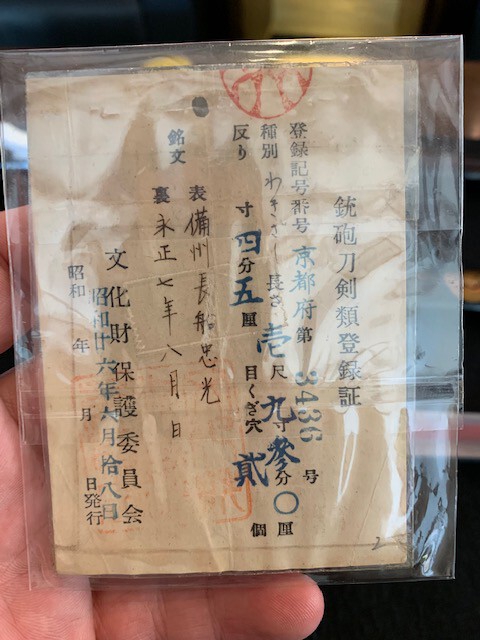 銃砲刀剣類登録証
登録記号番号 京都府 第 3436 号
種別 わきざし 長さ 壱尺九寸参分〇厘
反り 寸四分五厘 目くぎ穴 貳 個
銘文 表 備州長船忠光
裏 永正七年八月日
文化財保護委員会
昭和 年 月 日発行
昭和廿六年六月拾八日
2